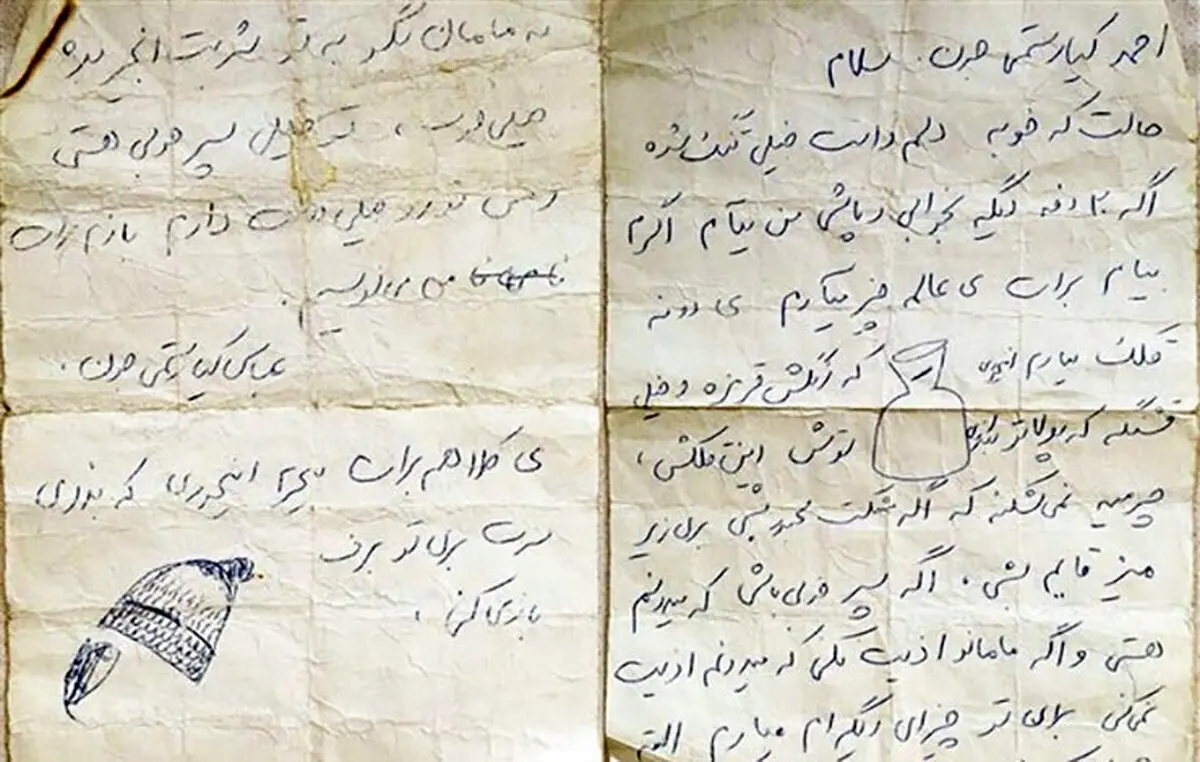 احمد کیارستمی جون. سلام
حالت که خوبه دلم واست خیلی تنگ شده
اگه ۲ دفه دیگه بخوابی و پاشی من میام اگرم
بیام برات ی عالمه چیز میارم ی دونه
قلک میارم اینجوری که رنگش قرمزه و خیلی
قشنگه که پولاتو بندازی توش این قلکش،
چرمیه نمی‌شکنه که اگه شکست مجبور نشی بری زیر
میز قایم بشی. اگه پسر خوبی باشی که میدونم
هستی و اگه مامانو اذیت نکنی که میدونم اذیت
نمی‌کنی برای تو چیزای دیگه‌ام میارم البته
به مامان بگو به تو شربت انجیر بده
خیلی خوبه، تو خیلی پسر خوبی هستی
و من تو رو خیلی دوست دارم بازم برات
می‌نویسم.
عباس کیارستمی جون.
ی کلاهم برات میخرم اینجوری که بذاری
سرت بری تو برف
بازی کنی.